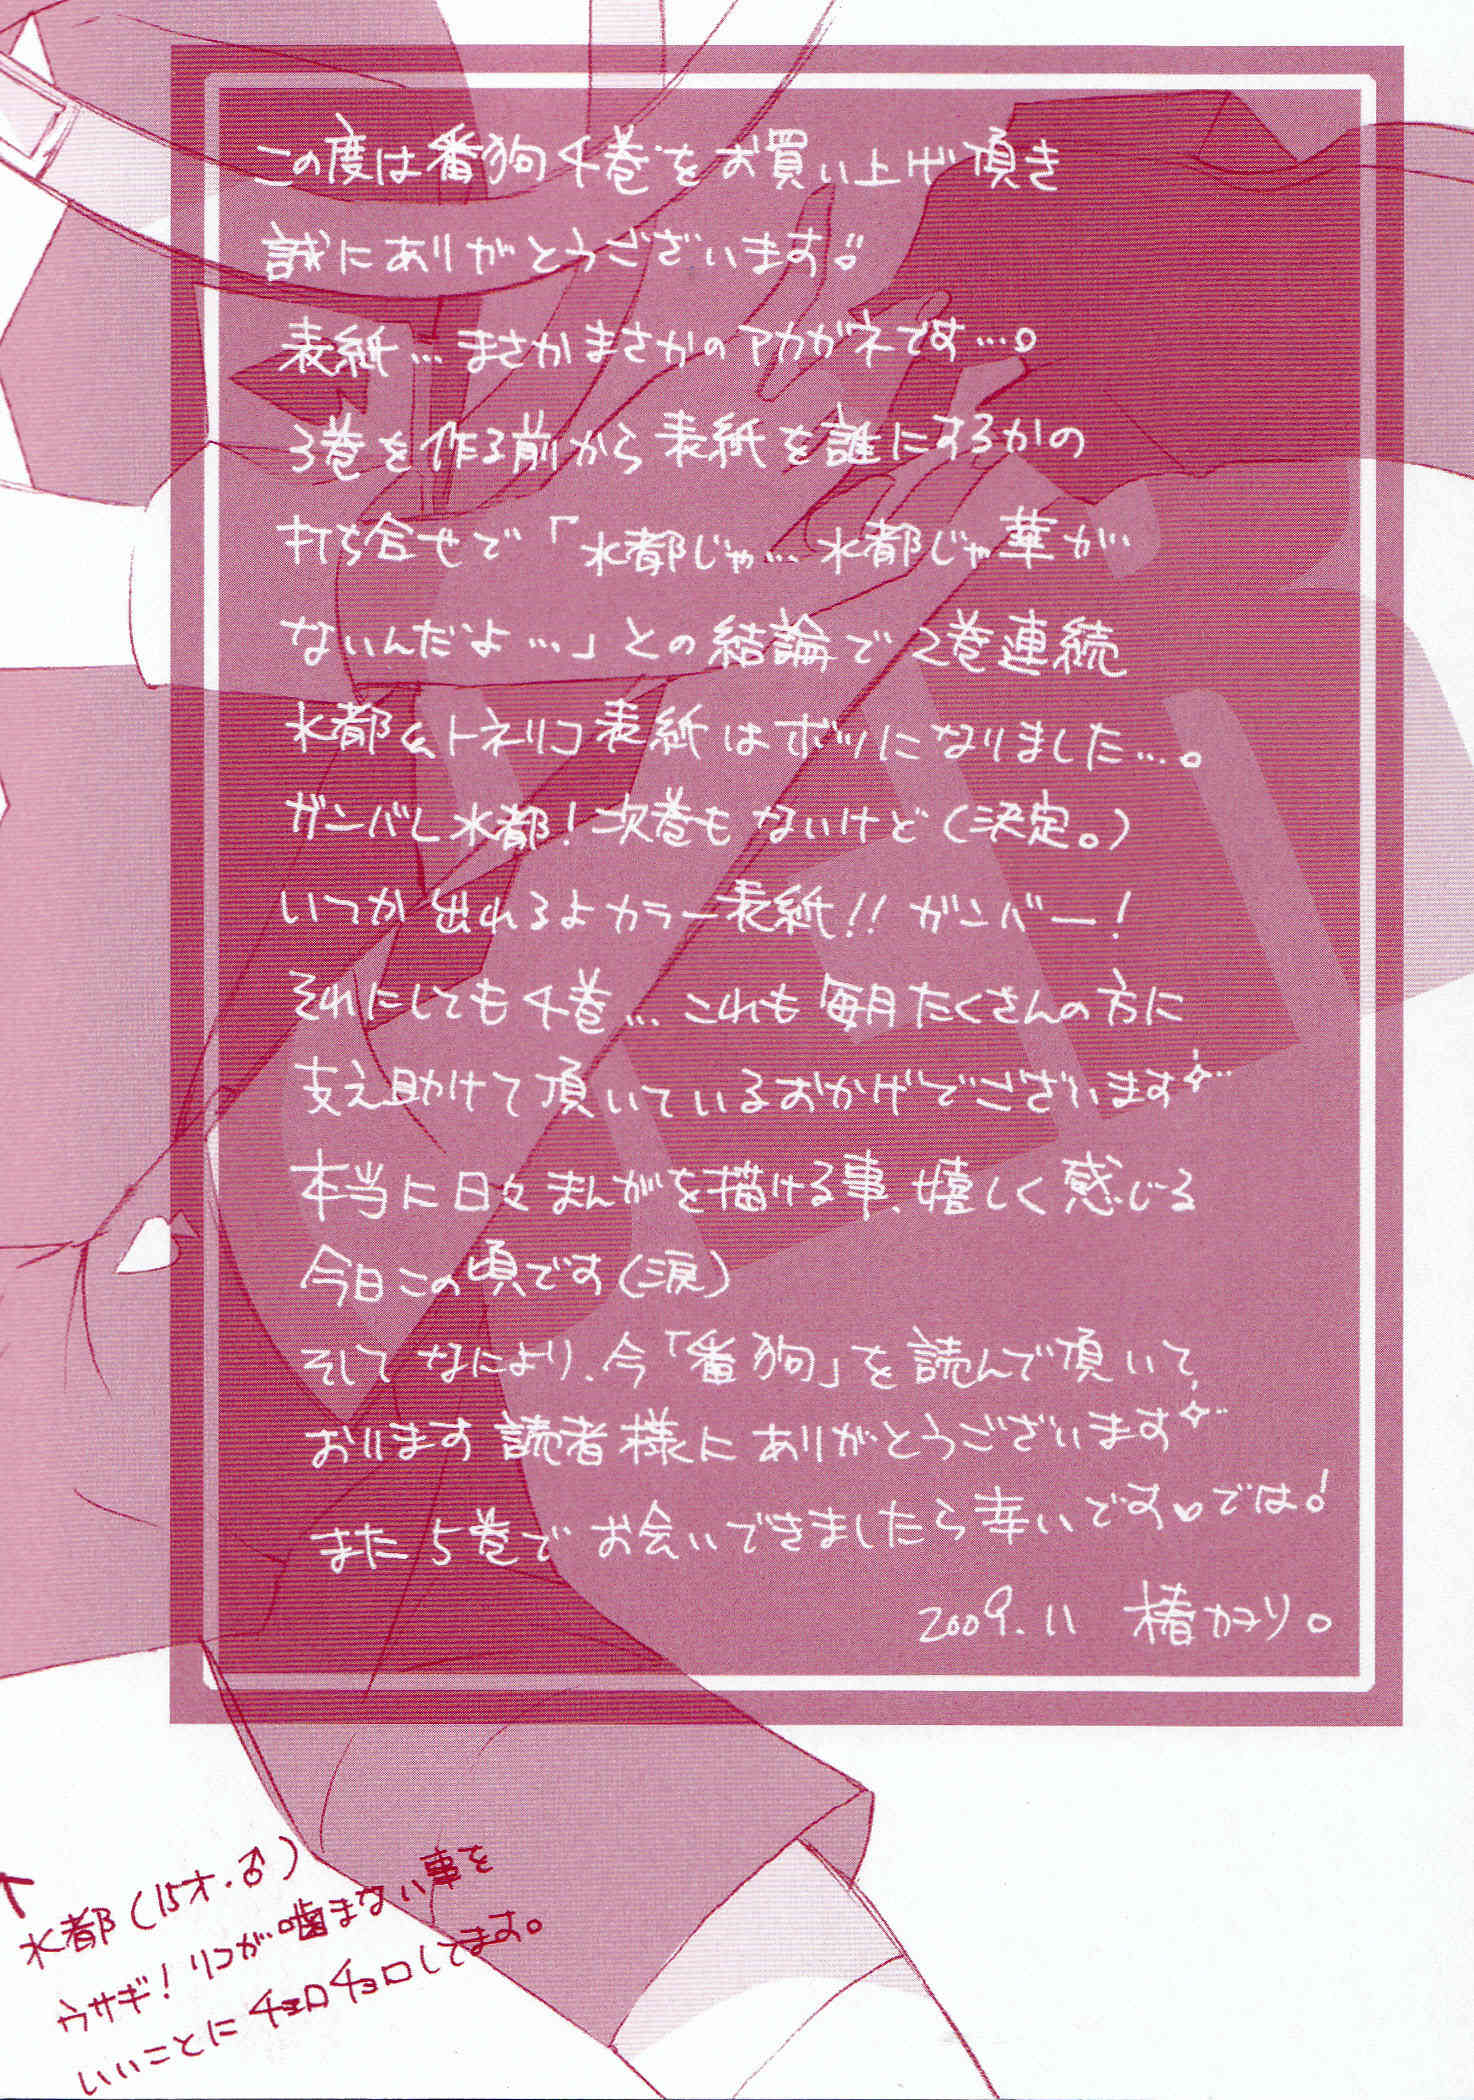 この度は番狗4巻をお買い上げ頂き
誠にありがとうございます!!
表紙…まさかまさかのアカガネです…。
3巻を作る前から表紙を誰にするかの
打ち合せで「水都じゃ…水都じゃ華が
ないんだよ…」との結論で2巻連続
水都&トネリコ表紙はボツになりました…。
ガンバレ水都!次巻もないけど(決定。)
いつか出れるよカラー表紙!!ガンバー!
それにしても4巻…これも毎月たくさんの方に
支え助けて頂いているおかげでございます✧…
本当に日々まんがを描ける事、嬉しく感じる
今日この頃です(涙)
そしてなにより、今「番狗」を読んで頂いて
おります読者様にありがとうございます✧…
また5巻でお会いできましたら幸いです♥では!
2009.11 椿カヲリ。
↑
水都(15才・♂)
ウサギ!リコが噛まない事を
いいことにチョロチョロしてます。